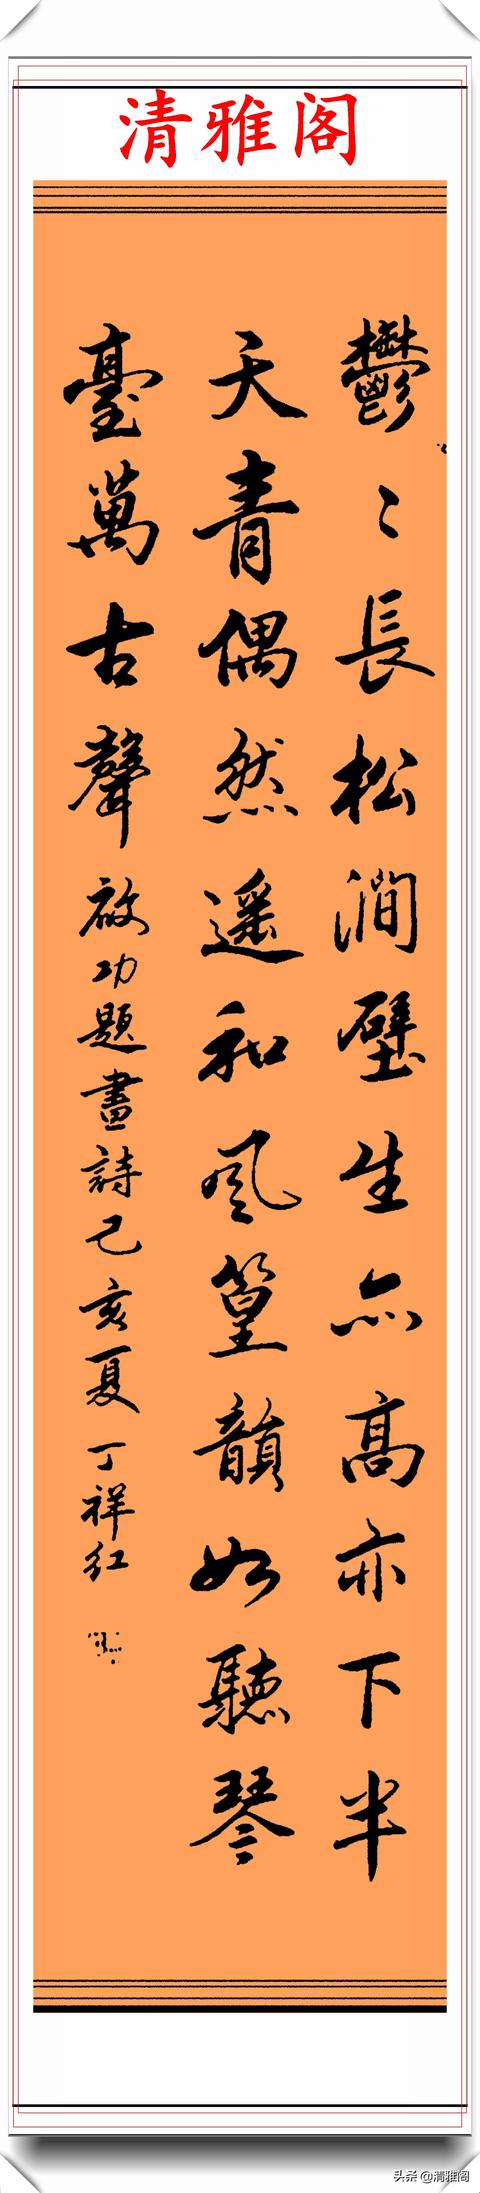 清雅阁
鬱〻長松澗壁生亦高亦下半
天青偶然遥和风篁韻如聽琴
臺萬古聲 啟功題畫詩己亥夏丁祥红
头条 @清雅阁